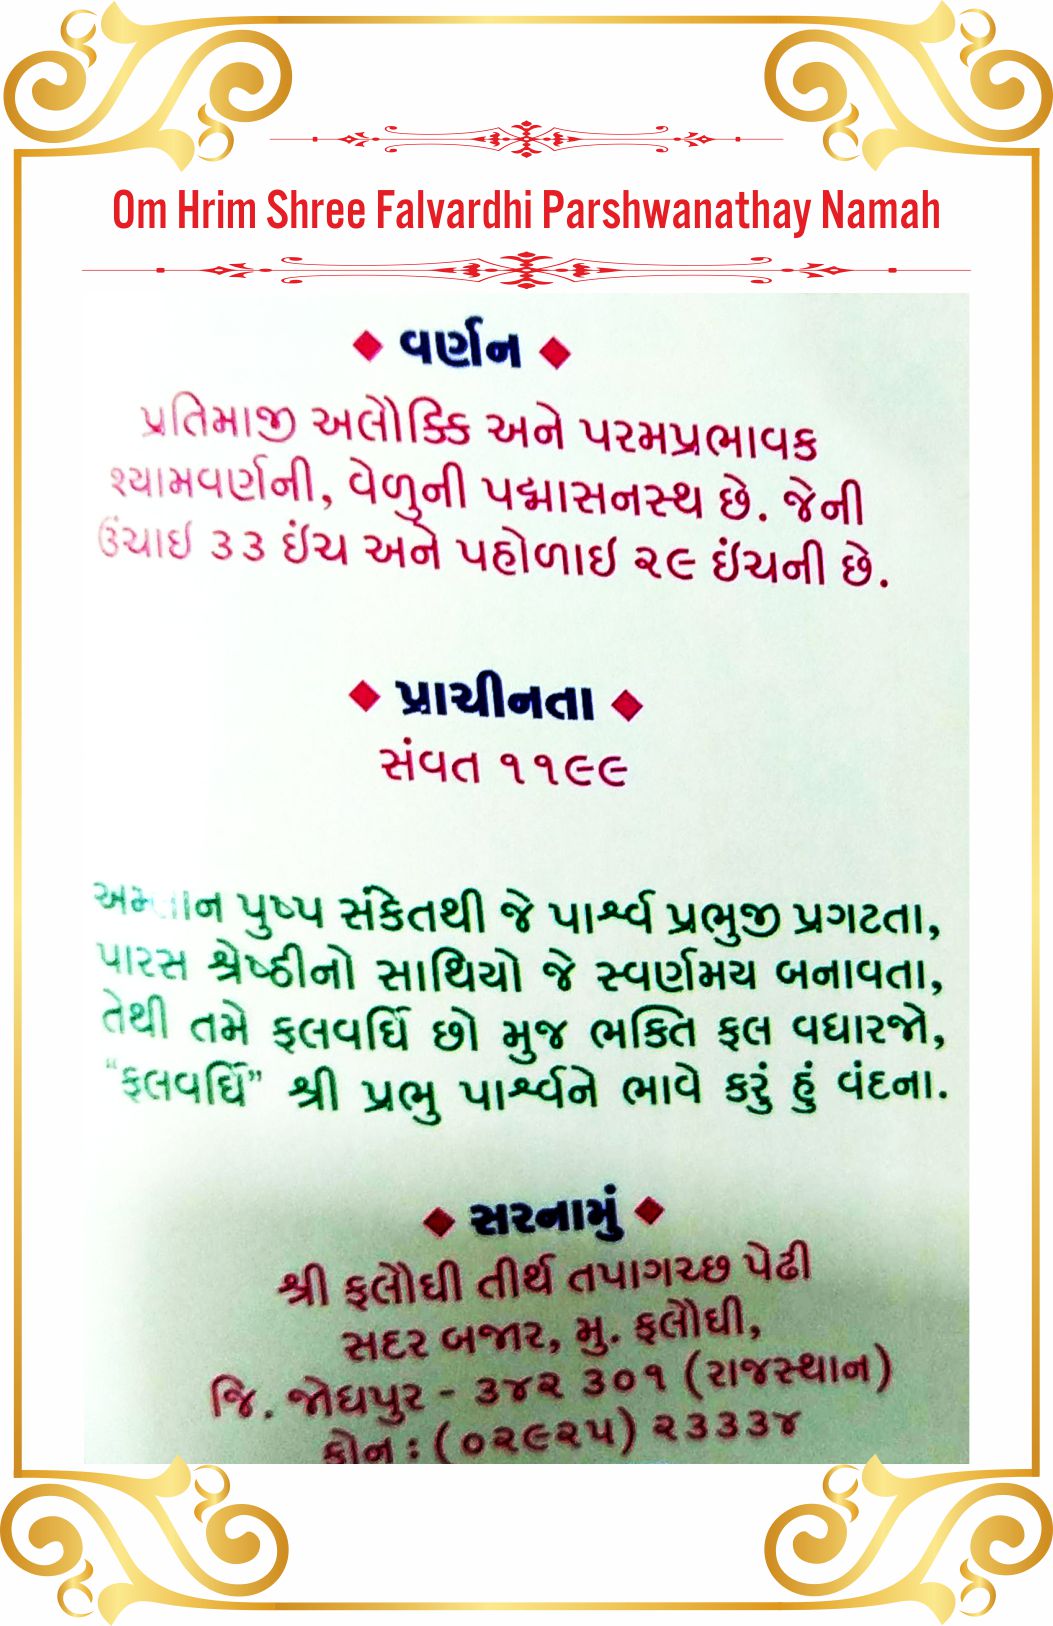 Om Hrim Shree Falvardhi Parshwanathay Namah
વર્ણન
પ્રતિમાજી અલૌક્કિ અને પરમપ્રભાવક
શ્યામવર્ણની, વેળુની પદ્માસનસ્થ છે. જેની
ઉંચાઇ ૩૩ ઇંચ અને પહોળાઇ ૨૯ ઇંચની છે.
પ્રાચીનતા
સંવત ૧૧૯૯
પુષ્પ સંકેતથી જે પાર્શ્વ પ્રભુજી પ્રગટતા,
પારસ શ્રેષ્ઠીનો સાથિયો જે સ્વર્ણમય બનાવતા,
તેથી તમે ફલવર્ધિ છો મુજ ભક્તિ ફલ વધારજો,
“ફલવર્ધિ” શ્રી પ્રભુ પાર્શ્વને ભાવે કરું હું વંદના.
સરનામું
શ્રી ફલૌધી તીર્થ તપાગચ્છ પેઢી
સદર બજાર, મુ. ફલૌધી,
જિ. જોધપુર - ૩૪૨ ૩૦૧ (રાજસ્થાન)
ફોન : (૦૨૯૨૫) ૨૩૩૩૪